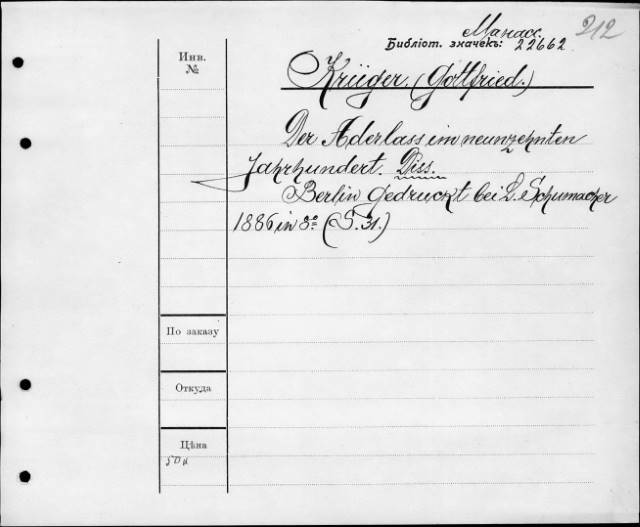 212
Манасс.
Библіот. значекъ: 22662
Инв.
№
Krüger, (Gottfried.)
Der Aderlass im neunzehnten
Jahrhundert. Diss.
Berlin gedruckt bei L. Schumacher
1886 in 8º (S. 31.)
По заказу
Откуда
Цѣна
50 к